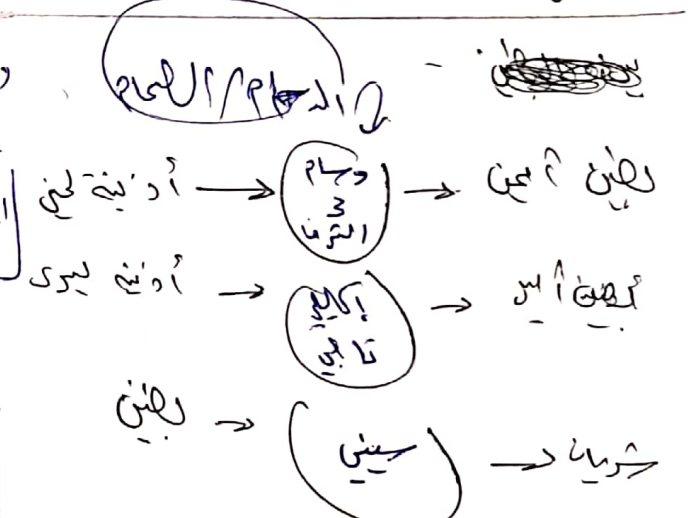 الدسام / الصمام
أذينة يمنى → دسام 3 الشرف → بطين أيمن
أذينة يسرى → إكليلي تاجي → بطين أيسر
بطين → سيني → شريان